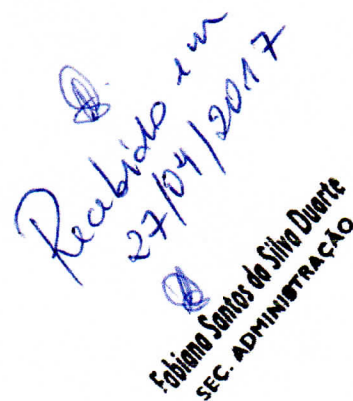 Recebido em
27/04/2017
Fabiana Santos da Silva Duarte
SEC. ADMINISTRAÇÃO